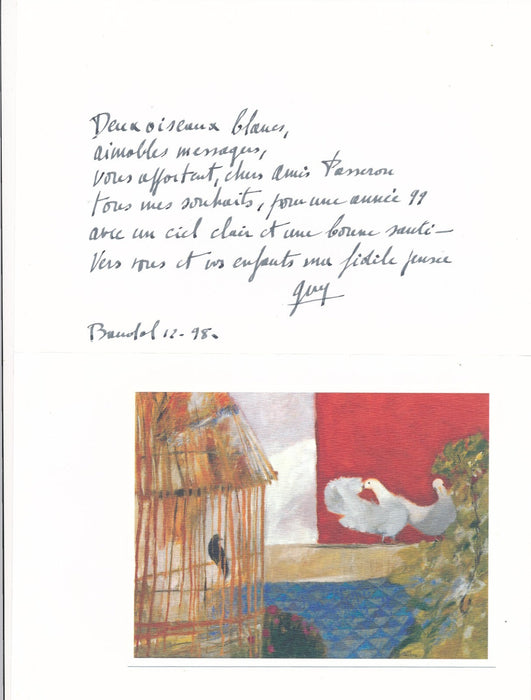 Deux oiseaux blancs,
aimables messagers,
vous apportent, chers amis Passeron
tous mes souhaits, pour une année 99
avec un ciel clair et une bonne santé –
Vers vous et vos enfants ma fidèle pensée
Guy
Bandol 12-98.